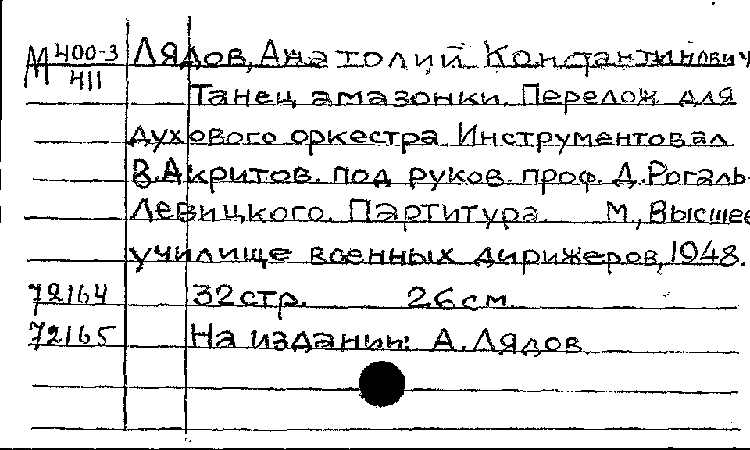 М 400-3/411 Лядов, Анатолий Константинович
Танец амазонки. Перелож для
духового оркестра Инструментовал
В.Акритов. под руков. проф. Д.Рогаль-
Левицкого. Партитура М., Высшее
училище военных дирижеров, 1948.
72164 32стр. 26см
72165 На издании: А.Лядов